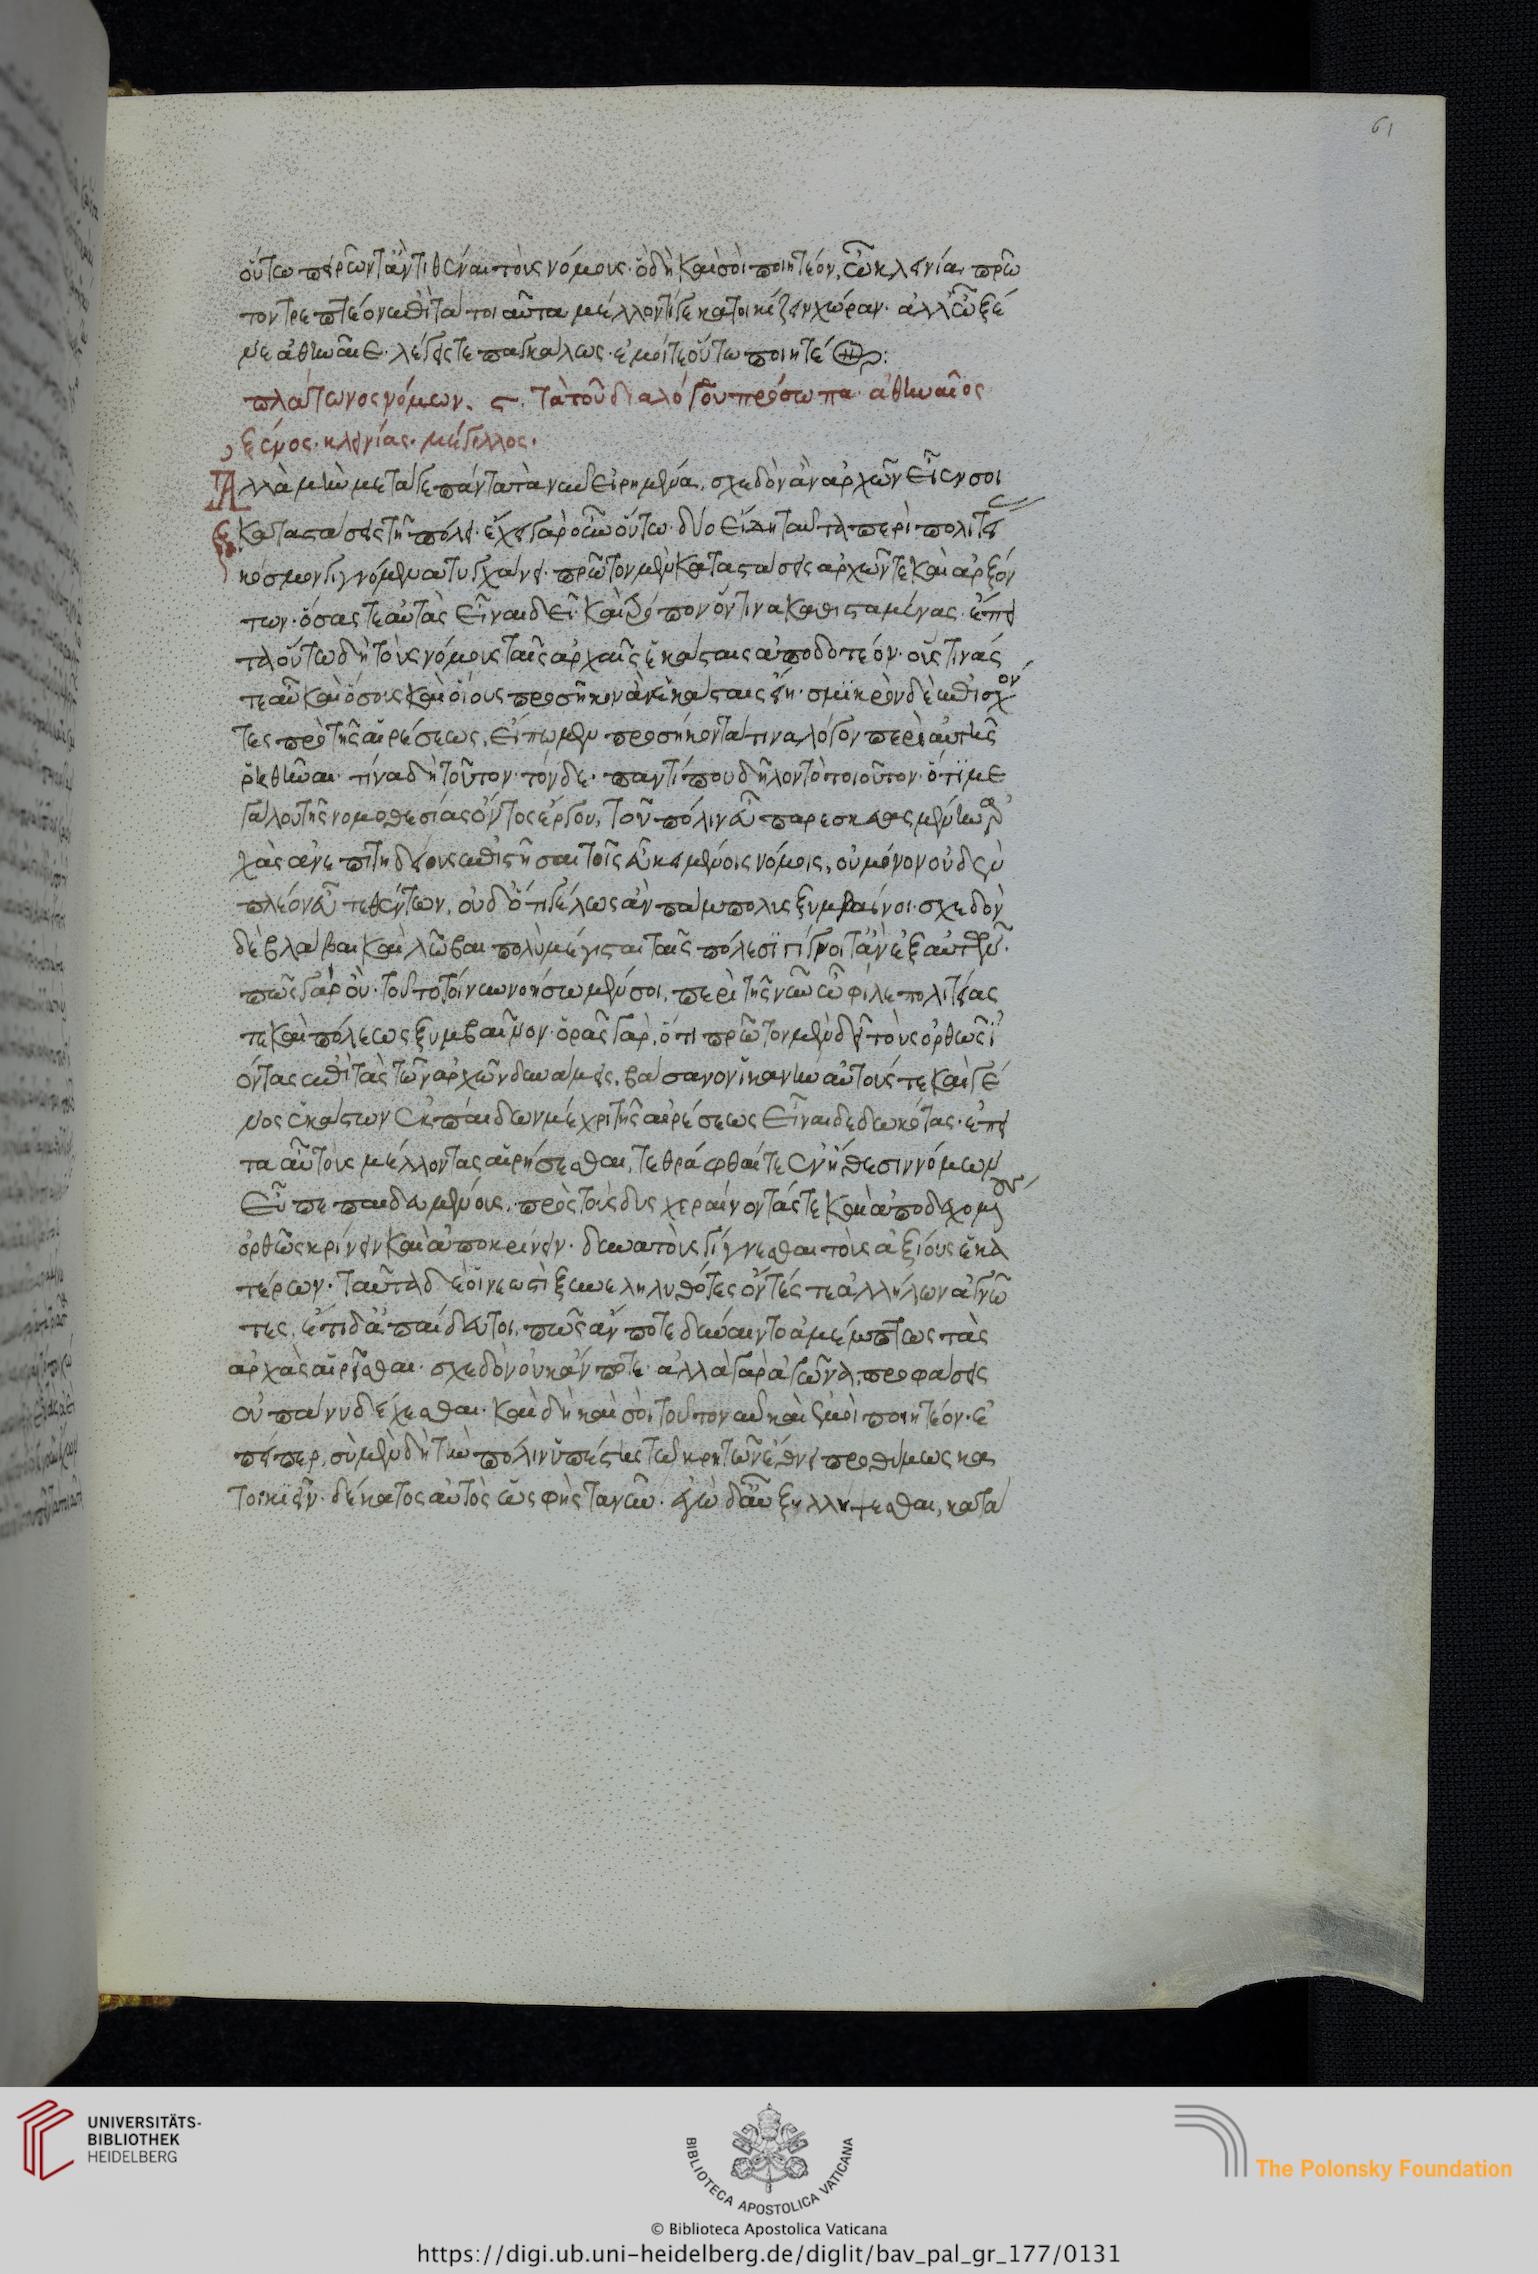 61
οὕτω πειρῶντ' ἀντιθέναι τοὺς νόμους· ὃ δὴ καὶ σοὶ ποιητέον, ὦ κλεινία, πρῶ
τον τρεπτέον ἐπὶ ταῦτοι αὐτὰ μέλλοντί γε κατοικίζειν χώραν· ἀλλ' ὦ ξέ
νε ἀθηναῖε· λέγεις τε παγκάλως· ἐμοί τε οὕτω ποιητέον:
πλάτωνος νόμων. ϛ. τὰ τοῦ διαλόγου πρόσωπα· ἀθηναῖος
ξένος· κλεινίας· μέγιλλος·
Ἀλλὰ μὴν μετά γε πάντα τὰ νῦν εἰρημένα, σχεδὸν ἂν ἀρχῶν εἶεν σοι
καταστάσεις τῇ πόλει· ἔχει γὰρ οὖν οὕτω· δύο εἴδη ταῦτα περὶ πολιτεί
κόσμον γιγνόμενα τυγχάνει· πρῶτον μὲν κατάστασεις ἀρχῶν τε καὶ ἀρξόν
των· ὅσας τε αὐτὰς εἶναι δεῖ καὶ τρόπον ὅντινα καθισταμένας· ἔπει
τα οὕτω δὴ τοὺς νόμους ταῖς ἀρχαῖς ἑκάσταις ἀποδοτέον· οὕς τινάς
τε αὖ καὶ ὅσους καὶ οἵους προσῆκον ἂν ἑκάσταις εἴη· σμϊκρὸν δὲ ἐπισχόν
τες πρὸ τῆς αἱρέσεως, εἴπωμεν προσήκοντά τινα λόγον περὶ αὐτῆς
ῥηθῆναι· τίνα δὴ τοῦτον· τόνδε· παντί που δῆλον τὸ τοιοῦτον· ὅτι με
γάλου τῆς νομοθεσίας ὄντος ἔργου, τοῦ πόλιν εὖ παρεσκευασμένην ἀρ
χὰς ἀνεπιτηδείους ἐπιστῆσαι τοῖς εὖ κειμένοις νόμοις, οὐ μόνον οὐδὲν
πλέον εὖ τεθέντων, οὐδ' ὅτι γέλως ἂν πάμπολυς ξυμβαίνοι· σχεδὸν
δὲ βλάβαι καὶ λῶβαι πολὺ μέγισται ταῖς πόλεσϊ γίγνοιτ' ἂν ἐξ αὐτῶν·
πῶς γὰρ οὔ· τοῦτο τοίνυν νοήσωμέν σοι, περὶ τῆς νῦν ὦ φίλε πολιτείας
τε καὶ πόλεως ξυμβαῖνον· ὁρᾷς γάρ, ὅτι πρῶτον μὲν δεῖ τοὺς ὀρθῶς ἰ
όντας ἐπὶ τὰς τῶν ἀρχῶν δυνάμεις, βάσανον ἱκανὴν αὐτούς τε καὶ γέ
νος ἑκάστων ἐκ παίδων μέχρι τῆς αἱρέσεως εἶναι δεδωκότας· ἔπει
τα αὖ τοὺς μέλλοντας αἱρήσεσθαι, τεθράφθαι τε ἐν ἤθεσιν νόμων
εὖ πεπαιδευμένους, πρὸς τοὺς δυσχεραίνοντάς τε καὶ ἀποδεχομένους
ὀρθῶς κρίνειν καὶ ἀποκρίνειν· δυνατοὺς γίγνεσθαι τοὺς ἀξίους ἑκα
τέρων· ταῦτα δὲ οἱ νεωστὶ ξυνεληλυθότες ὄντές τε ἀλλήλων ἀγνῶ
τες, ἔτι δ' ἀπαίδευτοι, πῶς ἄν ποτε δύναιντο ἀμέμπτως τὰς
ἀρχὰς αἱρεῖσθαι· σχεδὸν οὐκ ἄν ποτε· ἀλλὰ γὰρ ἀγῶνα, προφάσεις
οὐ πάνυ δέχεσθαι· καὶ δὴ καὶ σοὶ τοῦτο νῦν καὶ ἐμοὶ ποιητέον· ἐ
πείπερ, σὺ μὲν δὴ τὴν πόλιν ὑπέστης τῷ κρητῶν ἔθνει προθύμως κα
τοικίζειν· δέκατος αὐτὸς ὡς φῂς τανῦν· ἐγὼ δ' αὖ ξυλλήψεσθαι, κατὰ
UNIVERSITÄTS-
BIBLIOTHEK
HEIDELBERG
BIBLIOTECA APOSTOLICA VATICANA
The Polonsky Foundation
© Biblioteca Apostolica Vaticana
https://digi.ub.uni-heidelberg.de/diglit/bav_pal_gr_177/0131